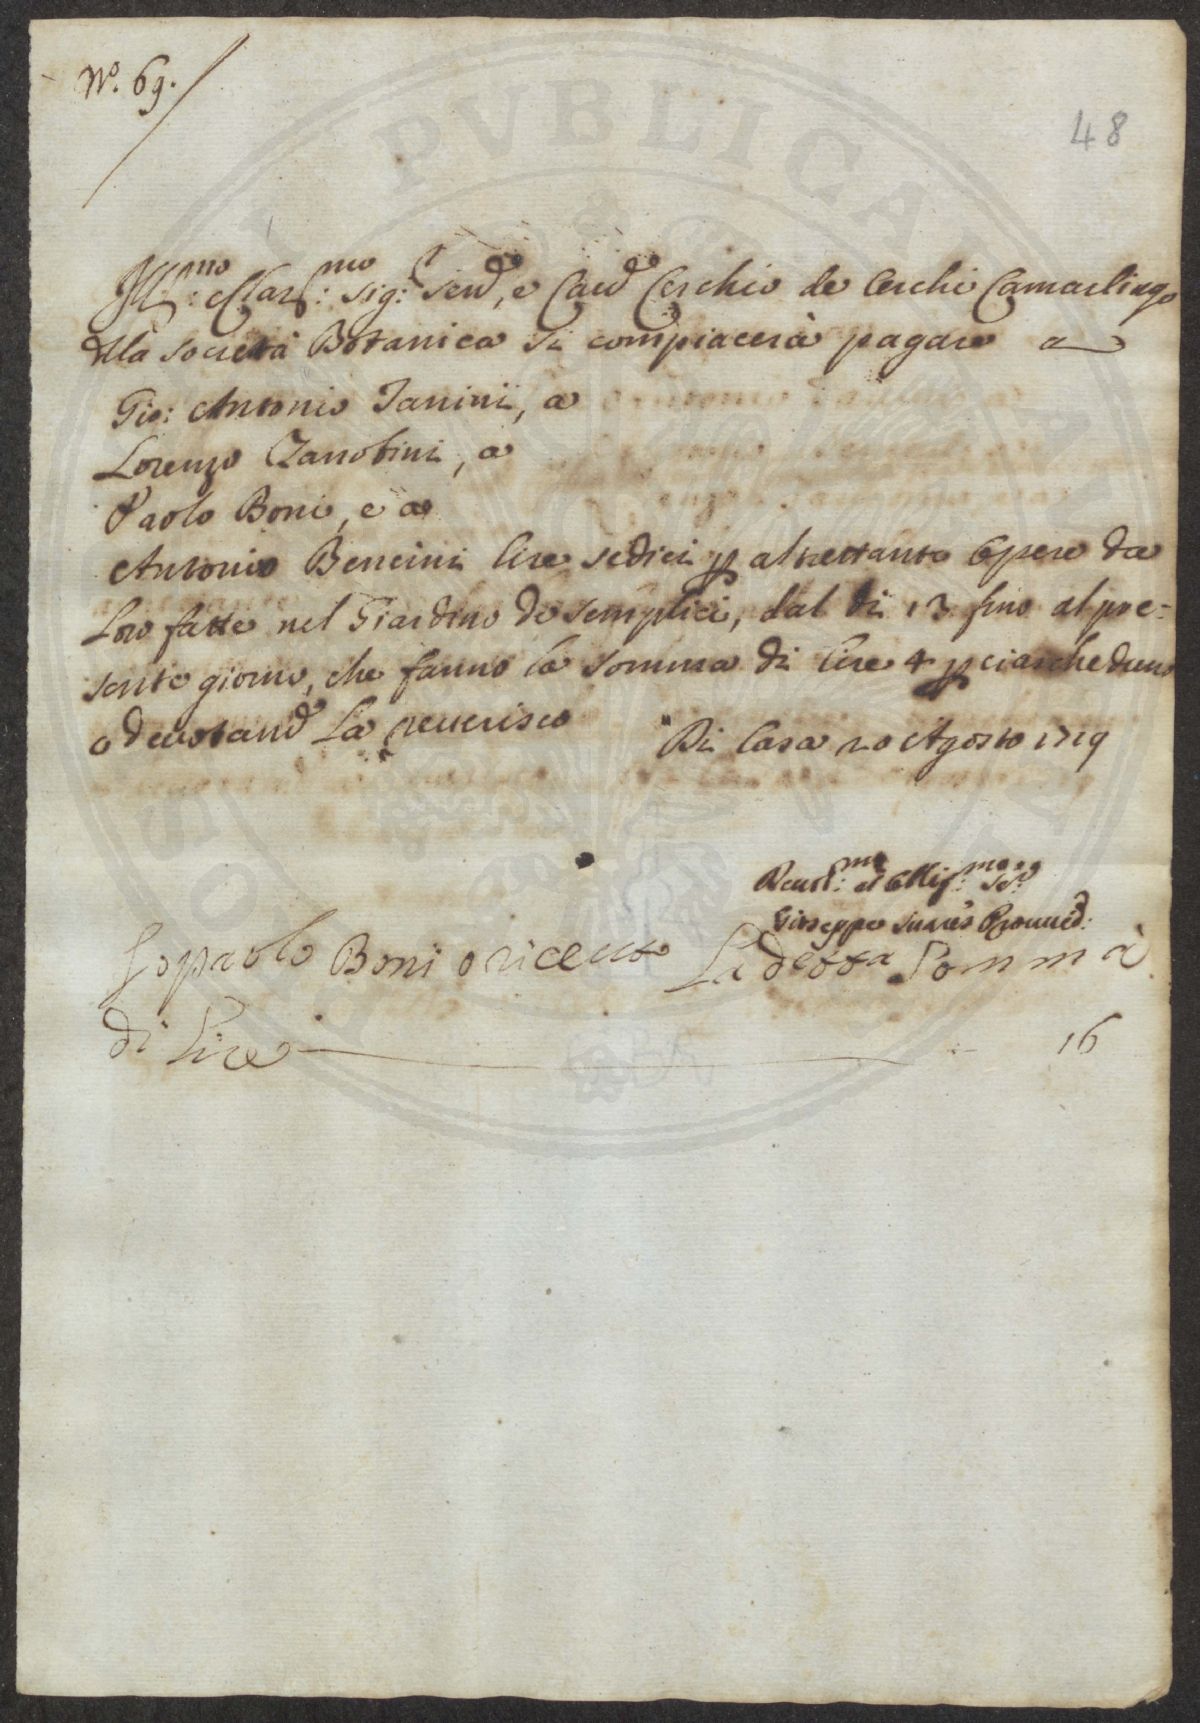 Nº. 69.
48
Ill:mo e Clar:mo Sig:r Send.e, e Cavd.e Cerchio de Cerchi Camarlingo
della Società Botanica si compiacerà pagare a
Gio: Antonio Janini, a
Lorenzo Zanobini, a
Paolo Boni, e a
Antonio Bencini lire sedici p altrettante Opere da
Loro fatte nel Giardino de Semplici, dal dì 13 fino al pre-
sente giorno, che fanno la somma di lire 4 p ciascheduno
e devotamd.e La reverisco Di Casa 20 Agosto 1719
Devot:mo et Obbig:mo Se:re
Giuseppe Suares Provved:
Io paolo Boni o riceuto La detta Somma
di Lire 16